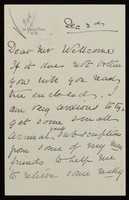 Dec 3
Dear Mr Wellcome
If it does not bother
you will you read
the enclosed. I
am very anxious to try
get some small
annual subscriptions
from some of my
friends to help me
to relieve some really